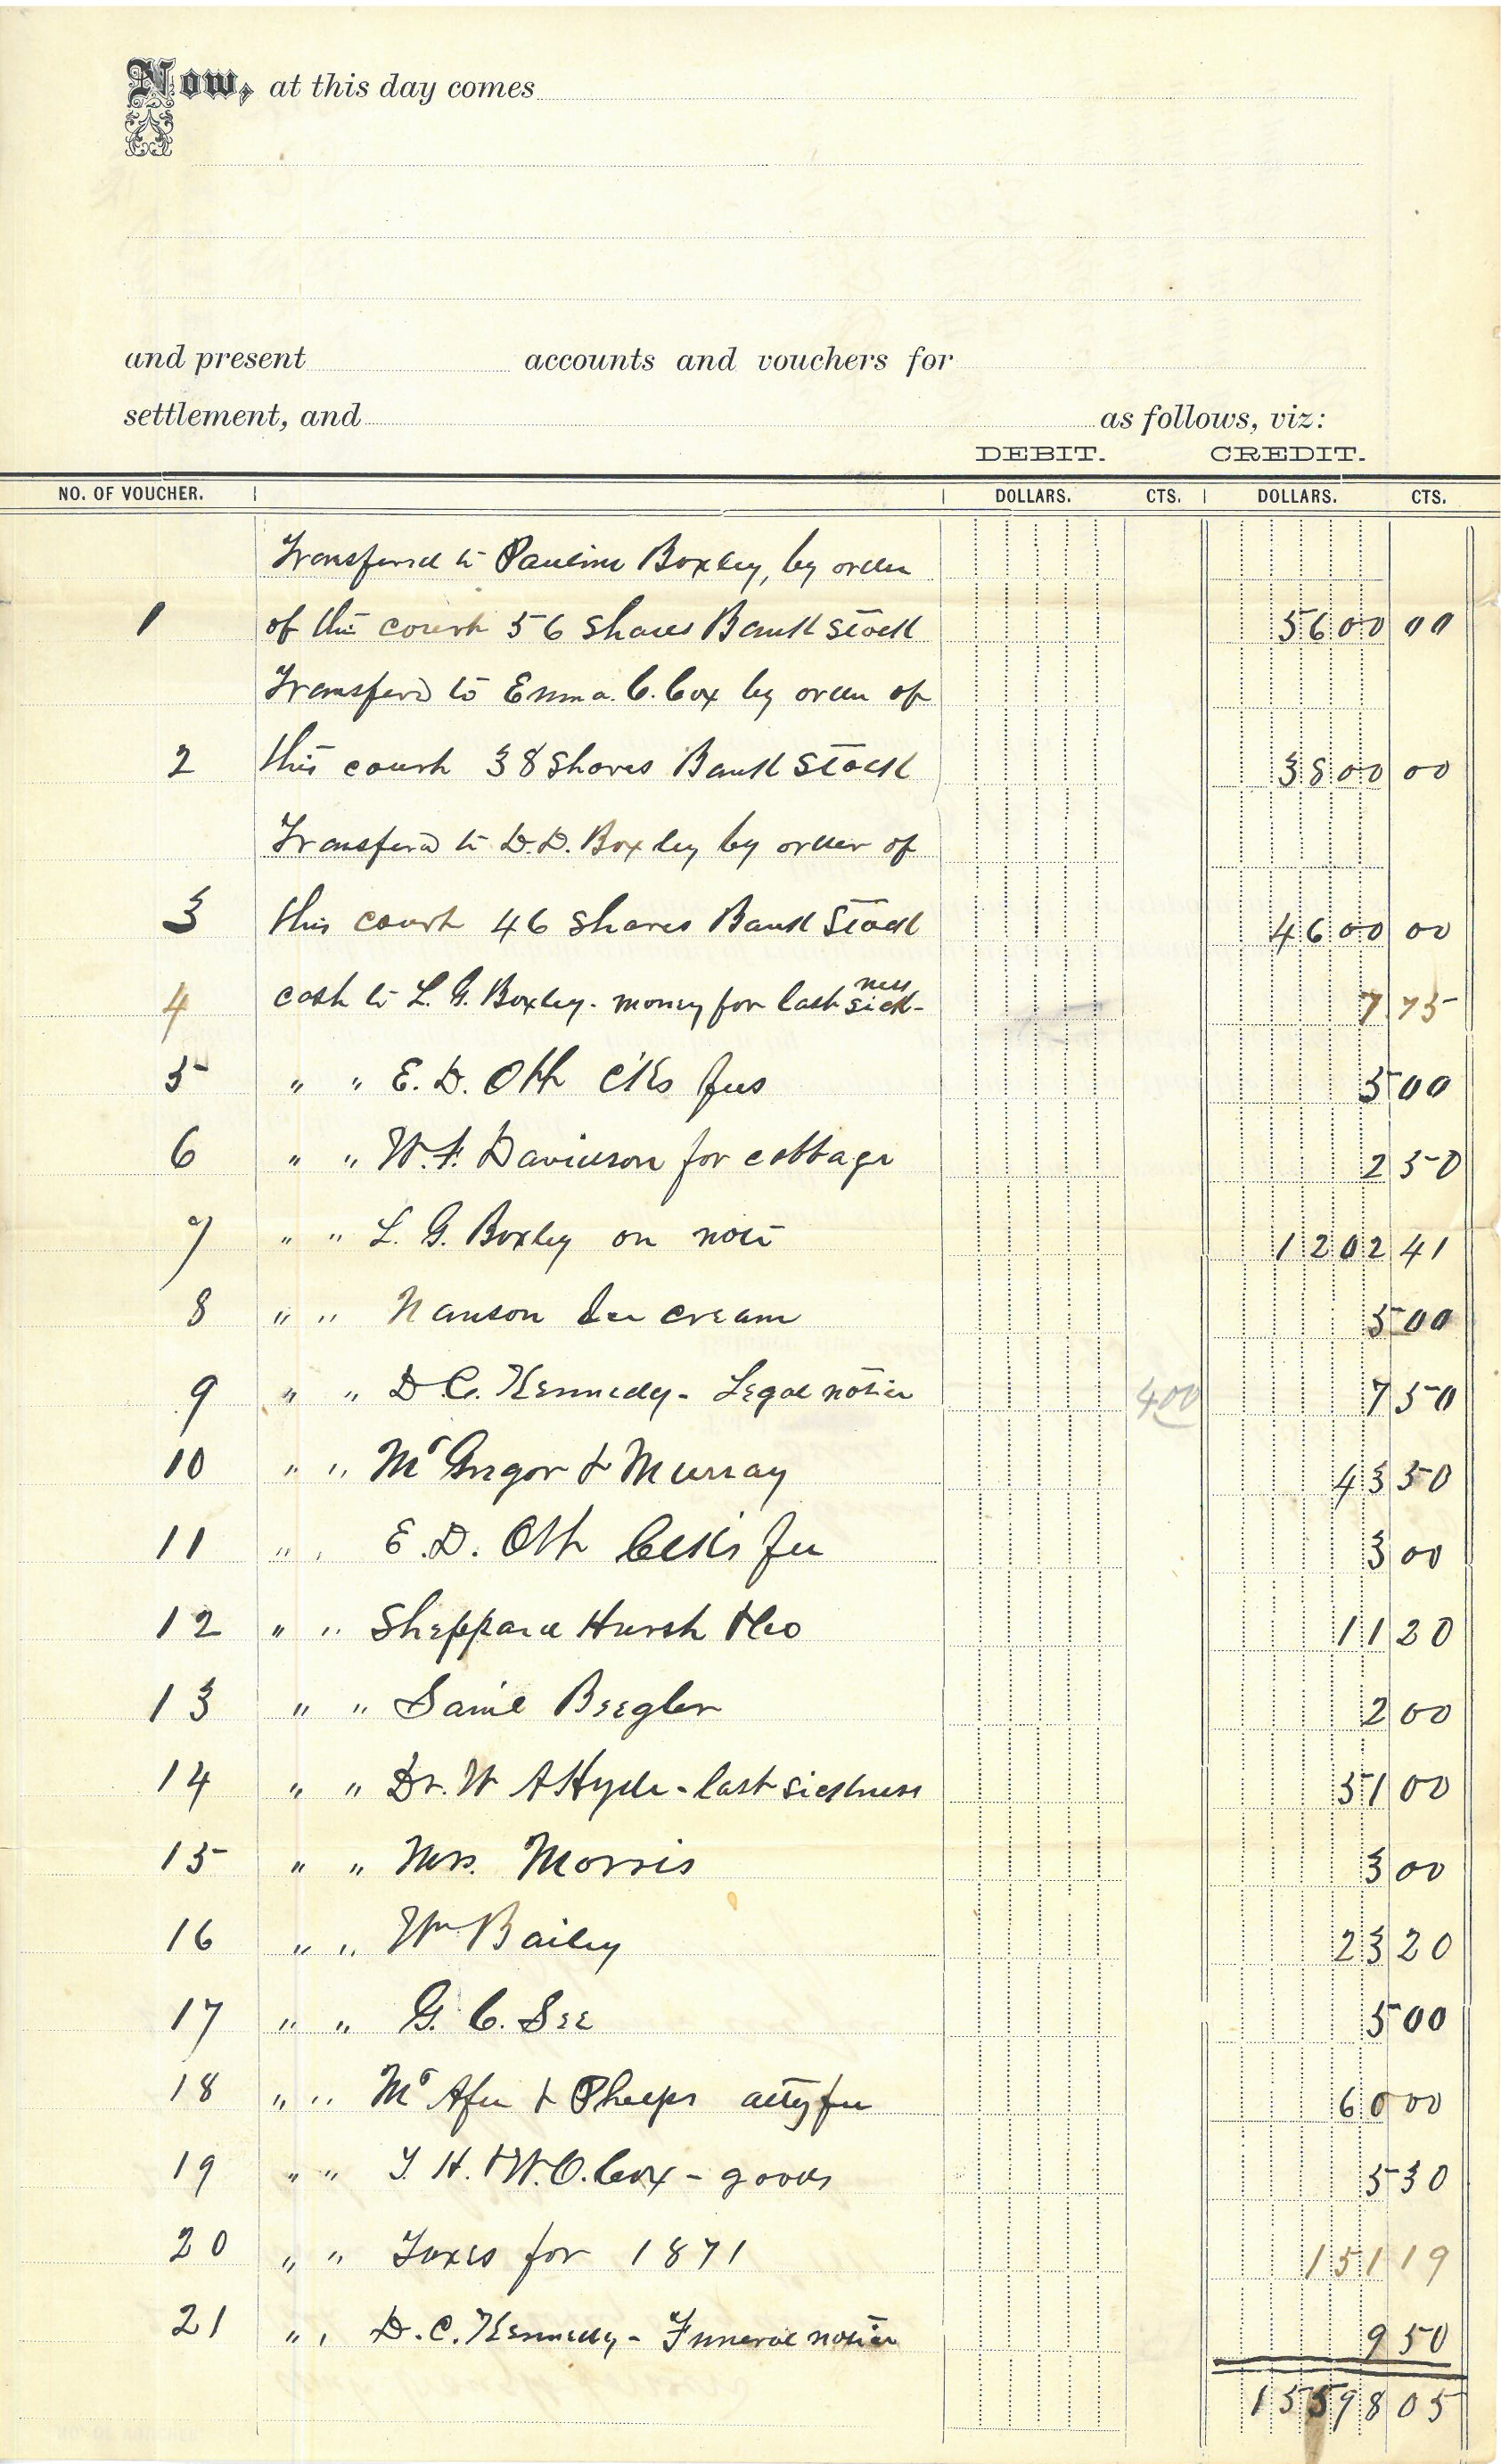 Now, at this day comes
and present accounts and vouchers for
settlement, and as follows, viz:
DEBIT. CREDIT.
NO. OF VOUCHER. DOLLARS. CTS. DOLLARS. CTS.
Transferred to Pauline Boxley, by order
1 of this court 56 Shares Bank Stock 5600 00
Transferd to Emma. C. Cox by order of
2 this court 38 Shares Bank Stock 3800 00
Transferd to D.D. Boxley by order of
3 this court 46 Shares Bank Stock 4600 00
4 cash to L. G. Boxley - money for last sickness 7 75
5 " " E. D. Ott clks fees 5 00
6 " " W. F. Davidson for cottage 2 50
7 " " L. G. Boxley on note 1202 41
8 " " Nanson Ice cream 5 00
9 " " D. C. Kennedy - Legal notice 400 7 50
10 " " Mc Gregor & Murray 43 50
11 " " E. D. Ott Clks fee 3 00
12 " " Sheppard Hursh & Co 11 20
13 " " Saml Beegler 2 00
14 " " Dr. W A Hyde - last sickness 51 00
15 " " Mrs. Morris 3 00
16 " " Wm Bailey 23 20
17 " " G. C. See 5 00
18 " " Mc Afee & Phelps atty fee 60 00
19 " " T. H. & W. O. Cox - goods 5 30
20 " " Taxes for 1871 151 19
21 " " D. C. Kennedy - Funeral notice 9 50
15598 05